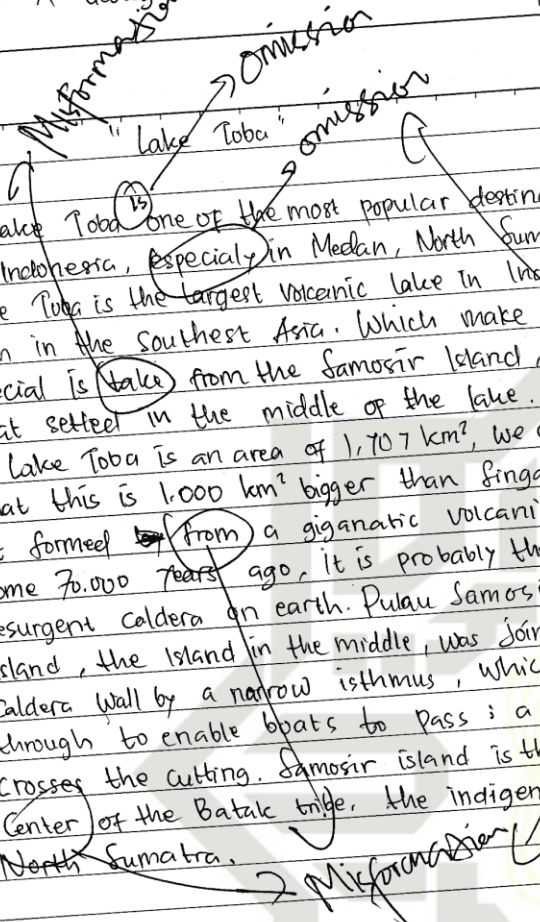 Misformatio
omission
omission
"Lake Toba"
ake Toba is one of the most popular destin
Indonesia, especialy in Medan, North Sum
e Toba is the largest volcanic lake in Ind
n in the Southest Asia. Which make
ecial is take from the Samosir Island,
at setteel in the middle of the lake.
Lake Toba is an area of 1,707 km², we c
at this is 1.000 km² bigger than Singa
formed from a giganatic volcani
ome 70.000 Years ago, it is probably th
esurgent caldera on earth. Pulau Samosi
sland, the Island in the middle, was join
Caldera Wall by a narrow isthmus, whic
through to enable boats to pass : a
Crosses the cutting. Samosir island is th
Center of the Batak tribe, the indigen
North Sumatra.
Misformation